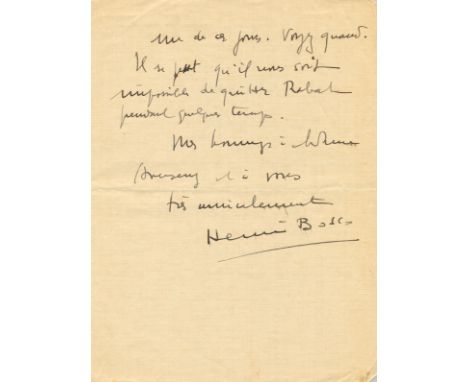 un de ces jours. Voyez quand.
Il se peut qu'il nous soit
impossible de quitter Rabat
pendant quelque temps.
Mes hommages à Madame
et à vous
très amicalement
Henri Bosco